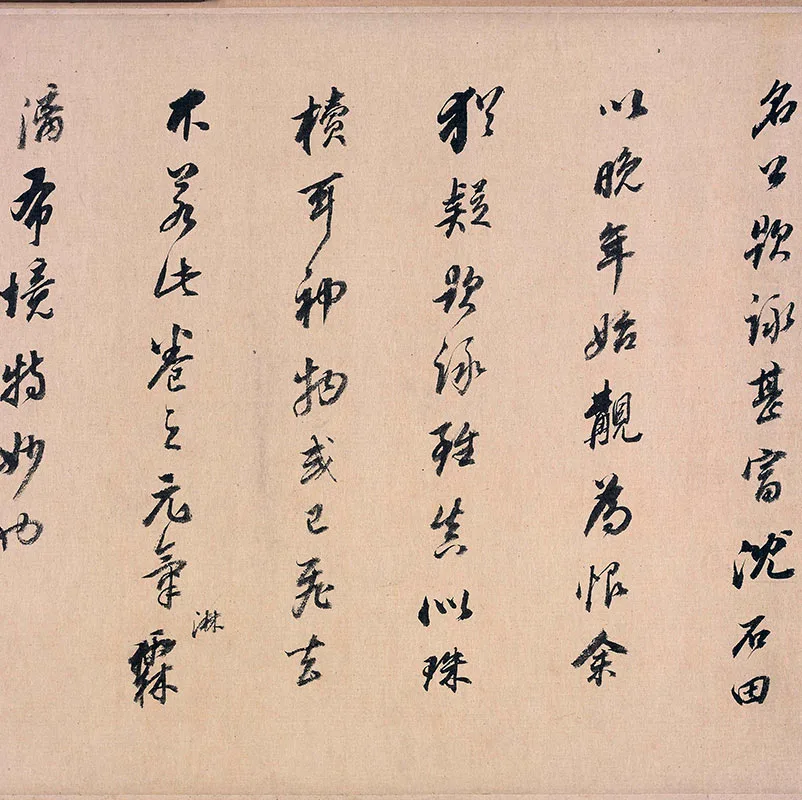 名公題詠甚富沈石田
以晚年始覯為恨余
猶疑題詠雖真似珠
櫝耳神物或已飛去
不若此卷之元氣淋
漓布境特妙也